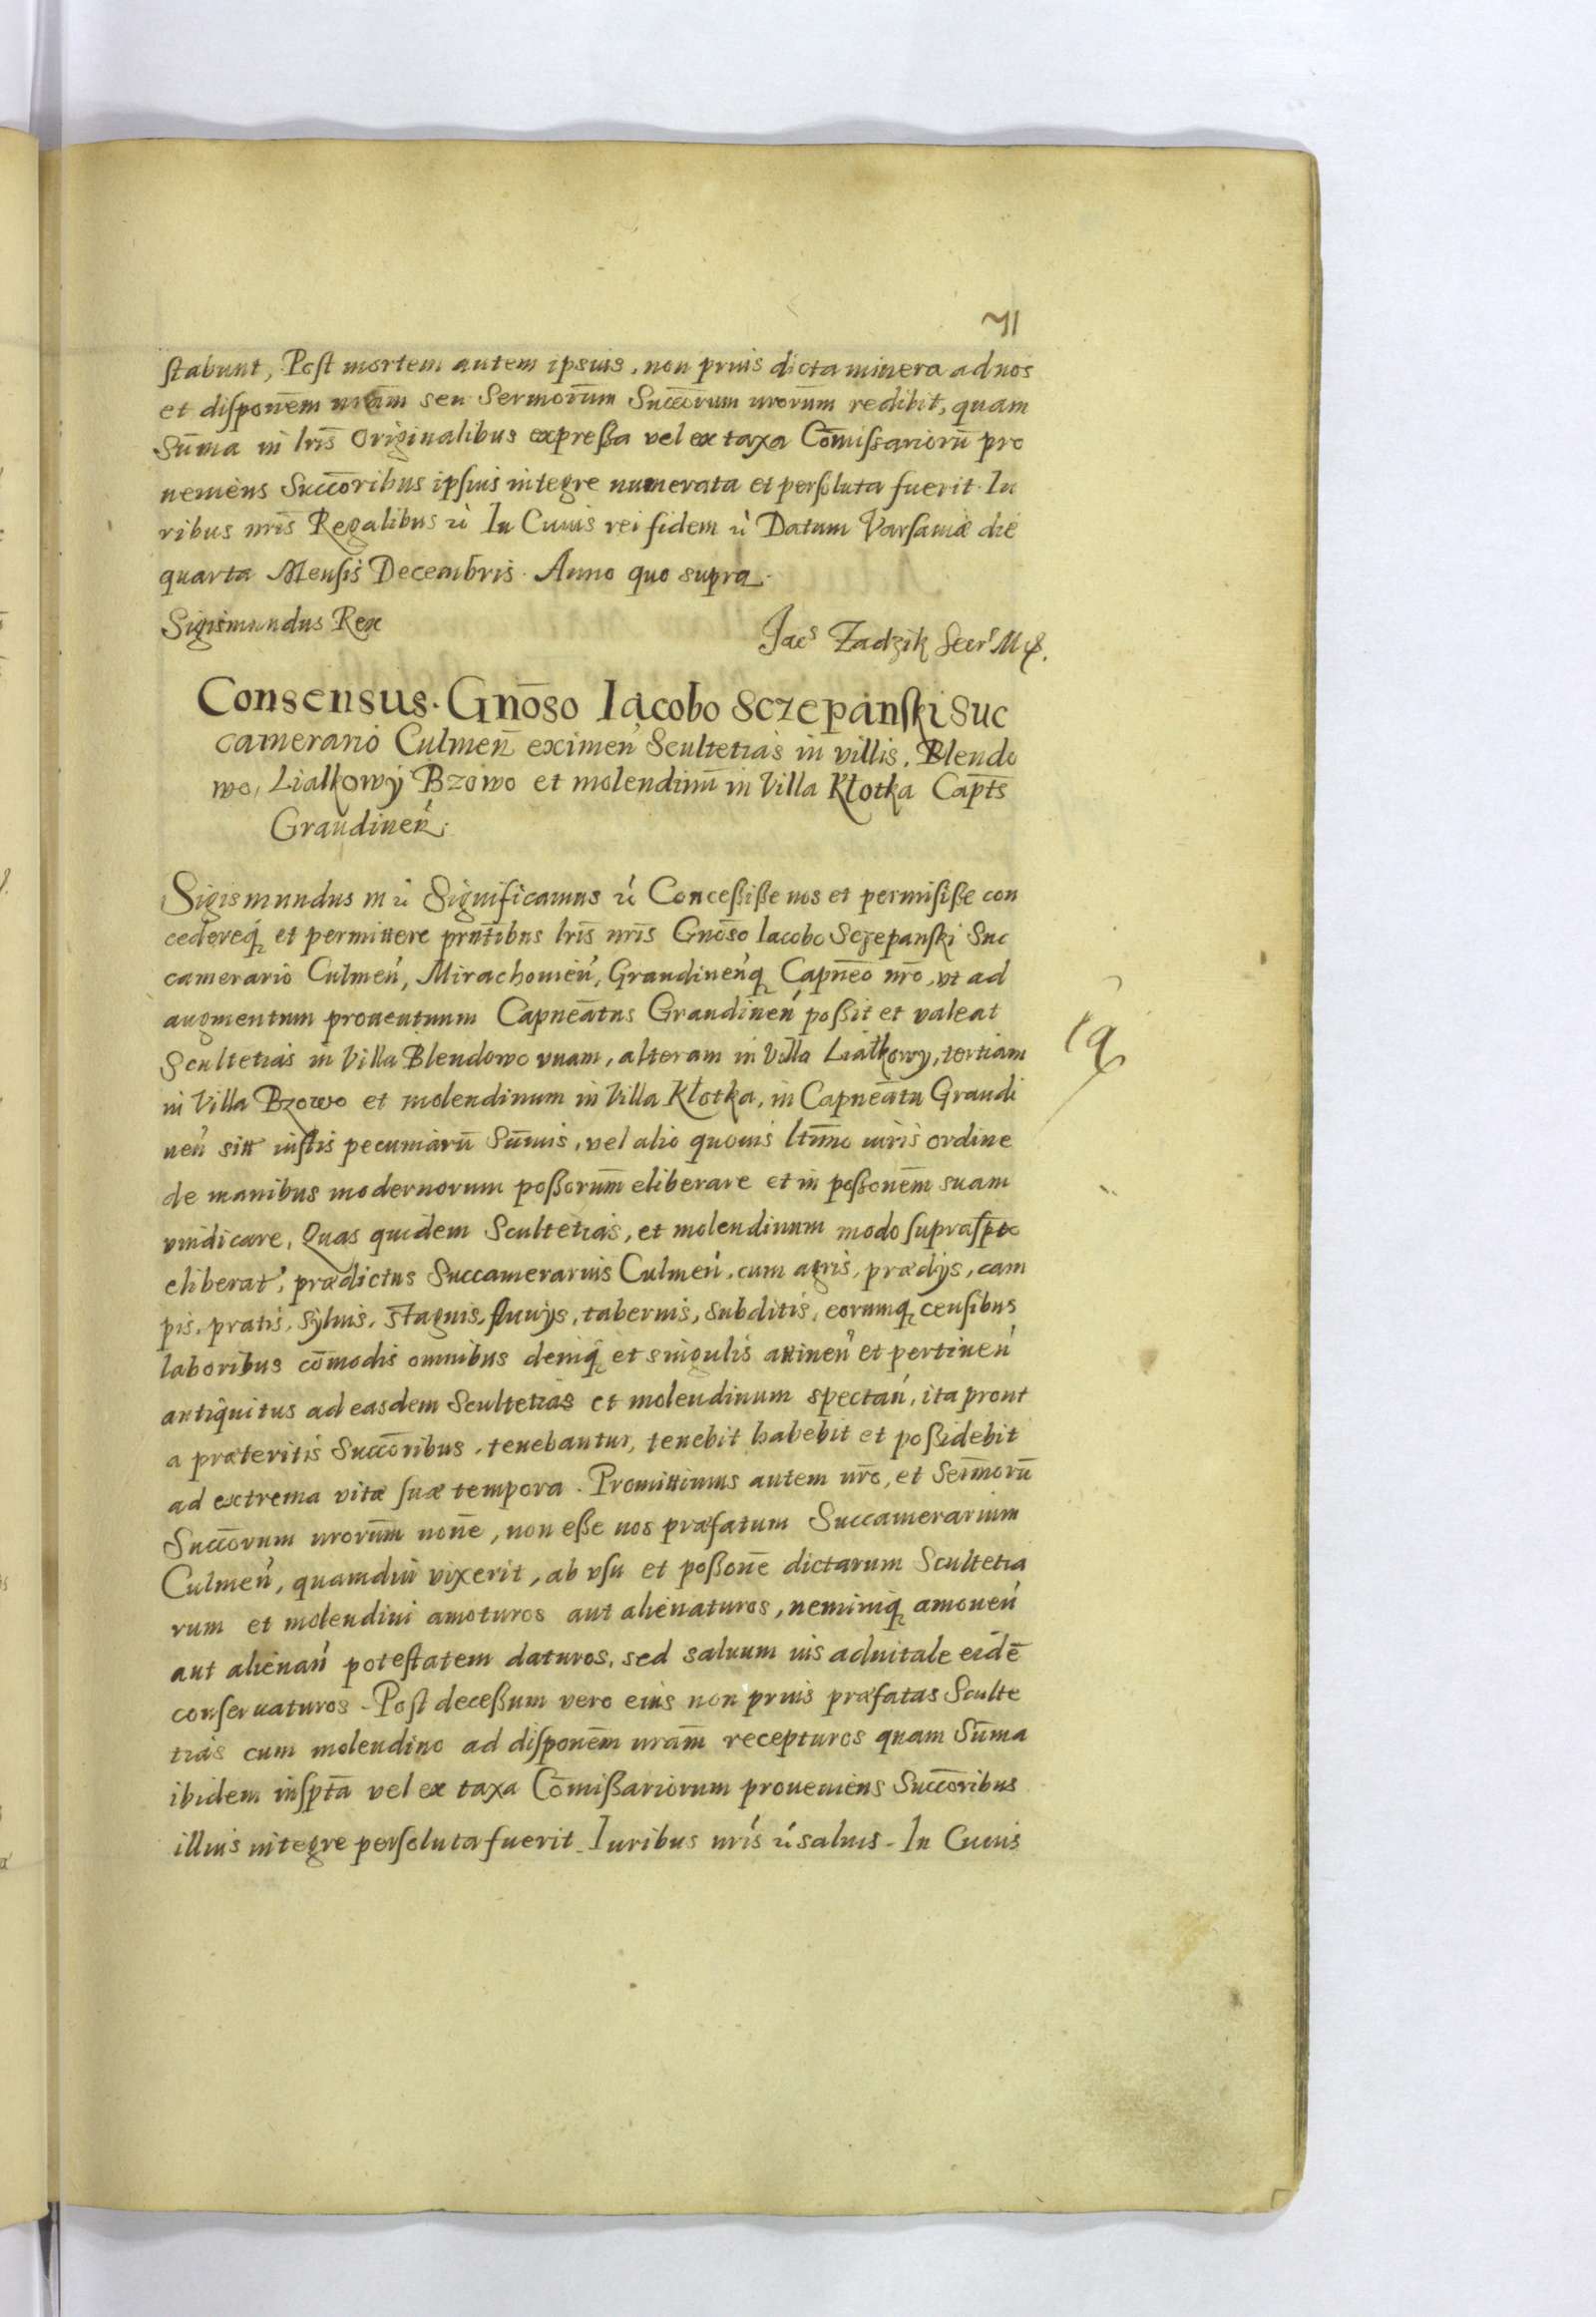 71
stabunt, Post mortem autem ipsius, non prius dicta minera ad nos
et disponem nrām seu Sermorūm Succōrum nrorūm redibit, quam
Sūma in lris̄ Originalibus expressa vel ex taxa Cōmissariorū pro
ueniens Succōribus ipsius integre numerata et persoluta fuerit. Iu
ribus nris̄ Regalibus rc̀ In Cuius rei fidem rc̀ Datum Varsauiæ die
quarta Mensis Decembris. Anno quo supra.
Sigismundus Rex
Jacs Zadzik Secrs M
Consensus. Gnōso Iacobo Sczepanski Suc
camerario Culmen̄ eximeń Scultetias in villis. Blendo
wo, Lialkowÿ Bzowo et molendinū in Villa Kłotka Capts̄
Graudineń.
Sigismundus III rc̀ Significamus rć Concessisse nos et permisisse con
cedereq́ et permittere prntībus lris̄ nris̄ Gnōso Iacobo Sczepanski Suc
camerario Culmeń, Mirachouień, Graudineńq Capnēo nr̄o, vt ad
augmentum prouentuum Capneātus Graudineń possit et valeat
Scultetias in Villa Blendowo vnam, alteram in Villa Liałkowy, tertiam
in Villa Bzowo et molendinum in Villa Kłotka, in Capneātu Graudi
neń sitt iustis pecuniarū Sūmis, vel alio quouis ltīmo iuris ordine
de manibus modernorum possorum̄ eliberare et in possonēm suam
vindicare, Quas quidem Scultetias, et molendinum modo suprasptō
eliberat', prædictus Succamerarius Culmeń, cum agris, prædÿs, cam
pis, pratis, sÿluis, stagnis, fluuÿs, tabernis, subditis, eorumq censibus
laboribus cōmodis omnibus deniq́ et singulis attineń et pertineń
antiquitus ad easdem Scultetias et molendinum spectań, ita prout
a præteritis Succōribus, tenebantur, tenebit habebit et possidebit
ad extrema vitæ suæ tempora. Promittimus autem nr̄o, et Serm̄orū
Succōrum nrorūm noīne, non esse nos præfatum Succamerarium
Culmeń, quamdiu vixerit, ab vsu et possonē dictarum Scultetia
rum et molendini amoturos aut alienaturos, neminiq́ amoueń
aut alienań potestatem daturos, sed saluum ius aduitale eidē
conseruaturos. Post decessum vero eius non prius præfatas Sculte
tias cum molendino ad disponēm nrām recepturos quam Sūma
ibidem insptā vel ex taxa Cōmissariorum proueniens Succōribus
illius integre persoluta fuerit. Iuribus nrís rć saluis. In Cuius